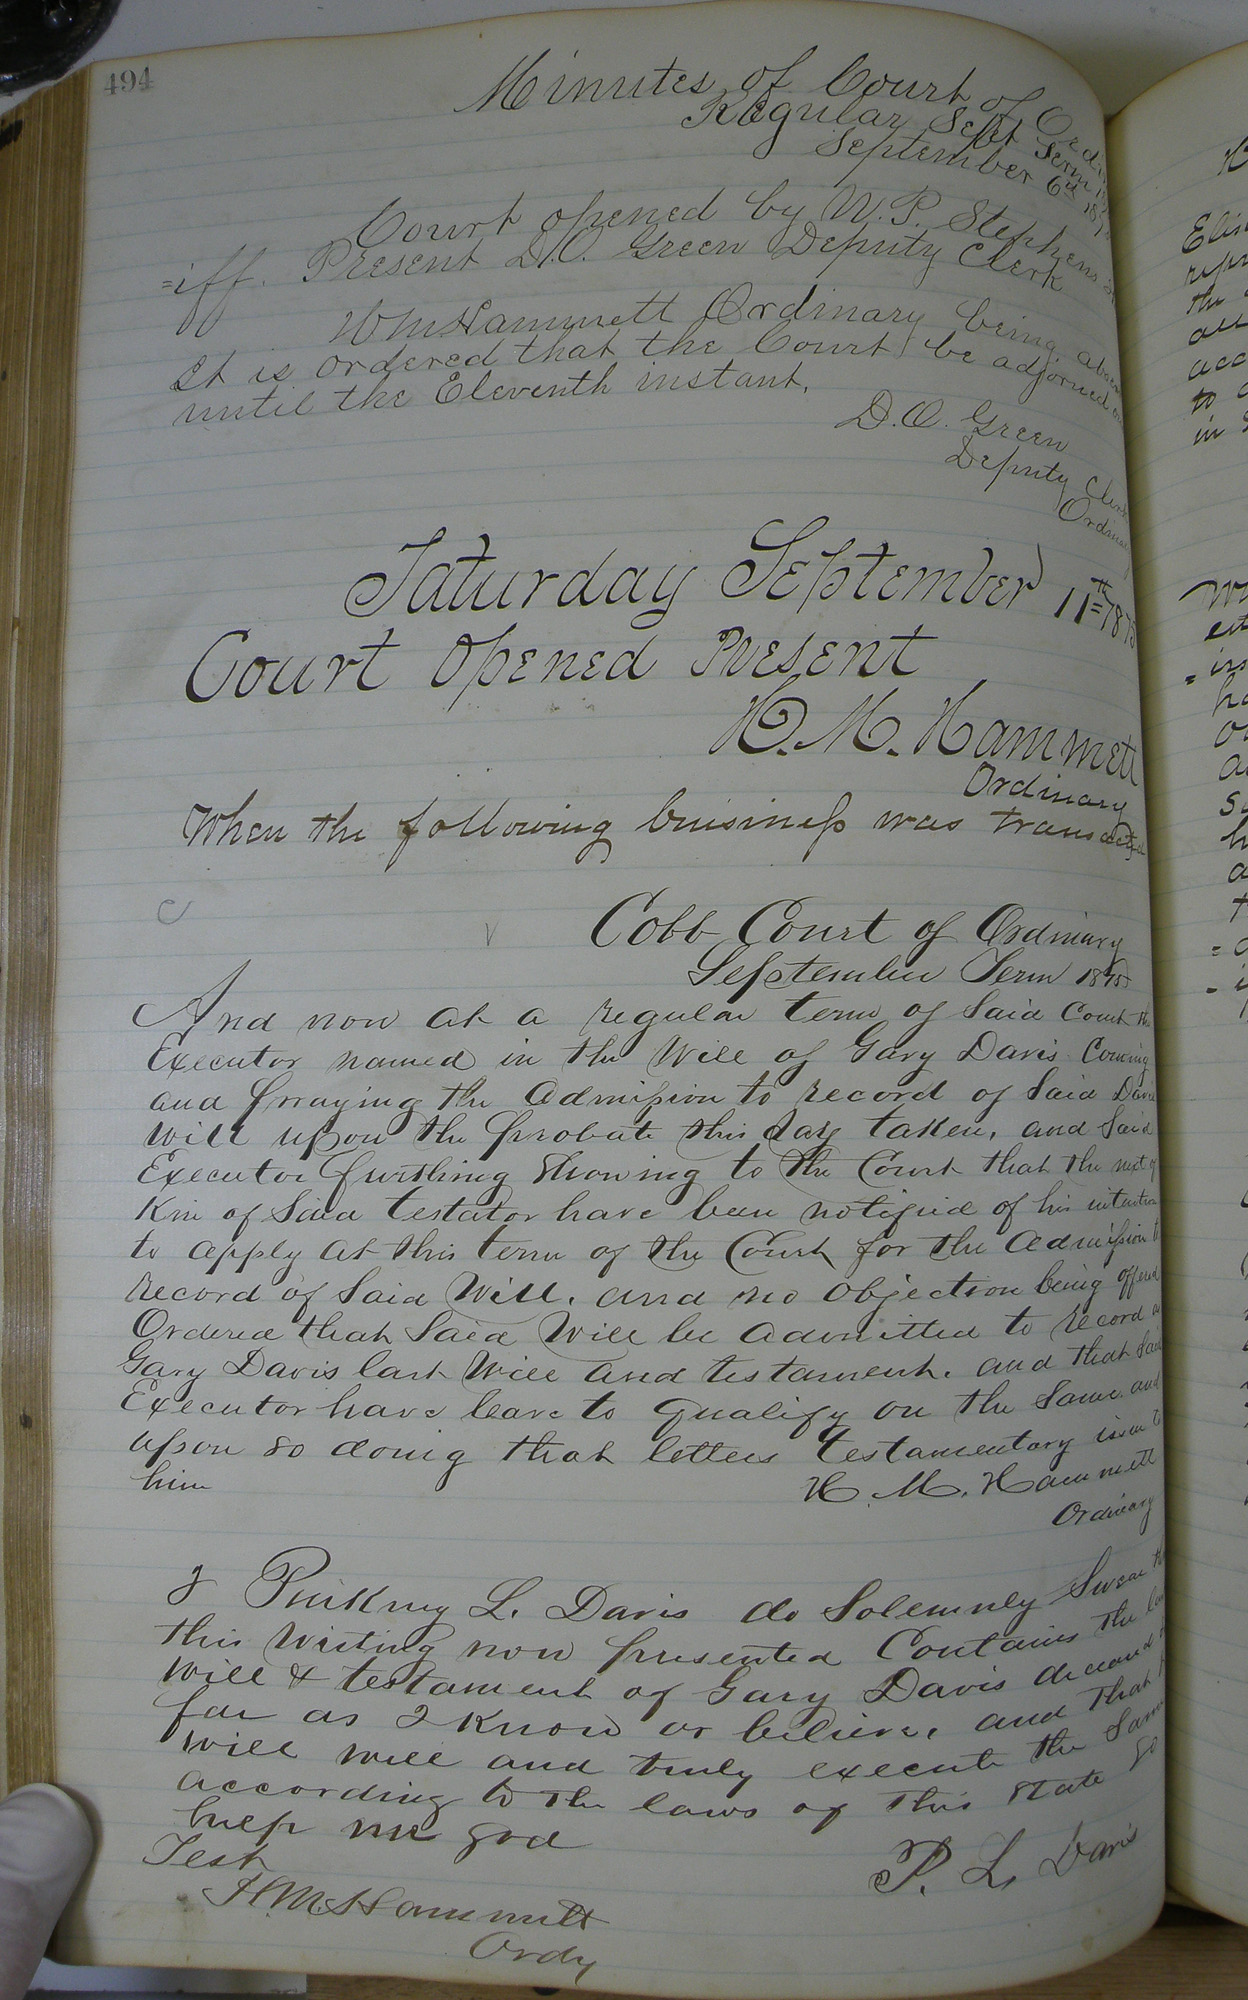 494
Minutes of Court of
Regular Sept Term
September 6th 18
Court opened by W. P. Stephens
=iff. Present D.O. Green Deputy Clerk
Hammett Ordinary being
It is ordered that the Court be adjorned
until the Eleventh instant.
D.O. Green
Deputy Clerk
Ordinary
Saturday September 11=th 1875
Court opened Present
H. M. Hammett
Ordinary
When the following buisiness was transacted
C
V Cobb Court of Ordinary
September Term 1875
And now at a regular term of Said Court the
Executor named in the Will of Gary Davis Coming
and praying the Admission to record of Said Davis
will upon the probate this day taken, and Said
Executor furthing Showing to the Court that the next of
Kin of Said testator have been notified of his intention
to apply at this term of the Court for the Admission to
record of Said Will. and no objection being offered
Ordered that Said Will be admitted to record as
Gary Davis last Will and testament. and that Said
Executor have leave to qualify on the Same. and
upon so doing that letters testamentary issue to
him
H. M. Hammett
Ordinary
I Pinkney L. Davis do Solemnly Swear
this Writing now presented Contains the
will & testament of Gary Davis deceased
far as I know or believe, and that
will well and truly execute the Same
according to the laws of this State So
help me god
P. L. Davis
Test
H.M. Hammett
Ordy